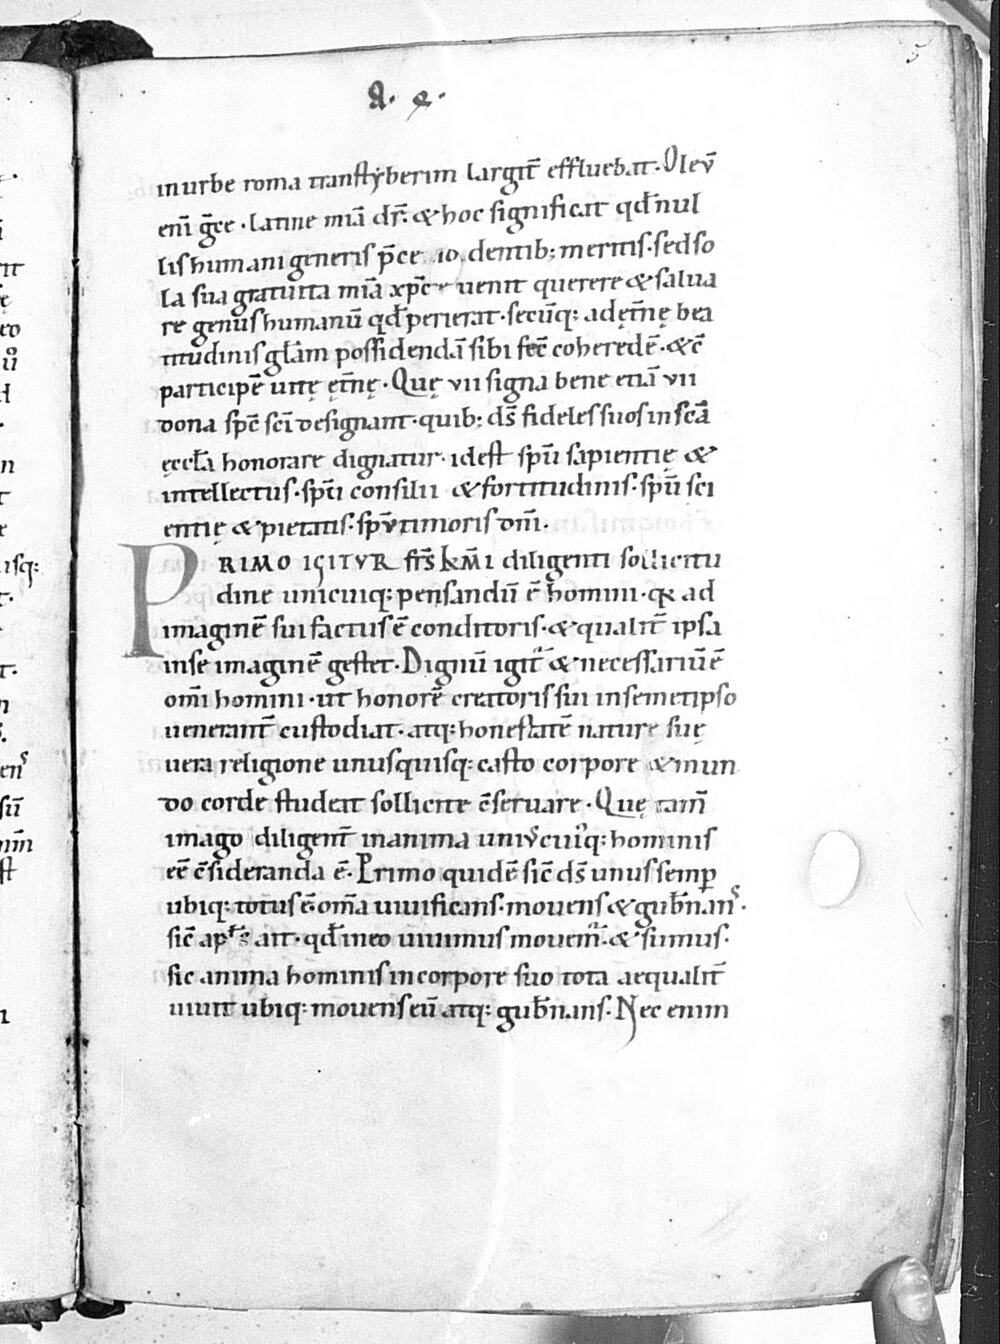 5
A. e.
in urbe roma transtẏberim largit̄ effluebat. Oleū
eni̅ gr̅ce. latine mia̅ dr̅. & hoc significat qd̅ nul
lis humani generis p̄ce dentib; meritis. sed so
la sua gratuita mia̅ xp̅c uenit querere & salua
re genus humanu̅ qd̅ perierat. secu̅q: ad ęt̅nę bea
titudinis gl̅am possidenda̅ sibi fec̅ coherede̅. & c̅
participe̅ uitę ęt̅nę. Quę vii signa bene etia̅ vii
dona sp̅c sc̅i designant. quib; ds̅ fideles suos in sc̅a
ęccl̅a honorare dignatur. idest sp̅u̅ sapientię &
intellectus. sp̅u̅ consilii & fortitudinis. sp̅u̅ sci
entię & pietatis. sp̅u̅ timoris dn̅i.
PRIMO IGITVR fr̅s km̅i diligenti sollicitu
dine unicuiq: pensandu̅ e̅ homini. qa ad
imagine̅ sui factus e̅ conditoris. & qualit̅ ipsa
in se imagine̅ gestet. Dignu̅ igit̅ & necessariu̅ e̅
om̅i homini. ut honore̅ creatoris sui in semetipso
uenerant̅ custodiat. atq: honestate̅ nature suę
uera religione unusquisq: casto corpore & mun
do corde studeat sollicite c̅seruare. Quę tam̅
imago diligent̅ in anima uniuscuiq: hominis
ee̅ c̅sideranda e̅. Primo quide̅ sic̅ ds̅ unus semp̅
ubiq: totus e̅ om̅a uiuificans. mouens & gub̅nans.
sic̅ apls̅ ait. qd̅ in eo uiuimus mouem̅. & sumus.
sic anima hominis in corpore suo tota aequalit̅
uiuit ubiq: mouens eu̅ atq: gub̅nans. Nec enim